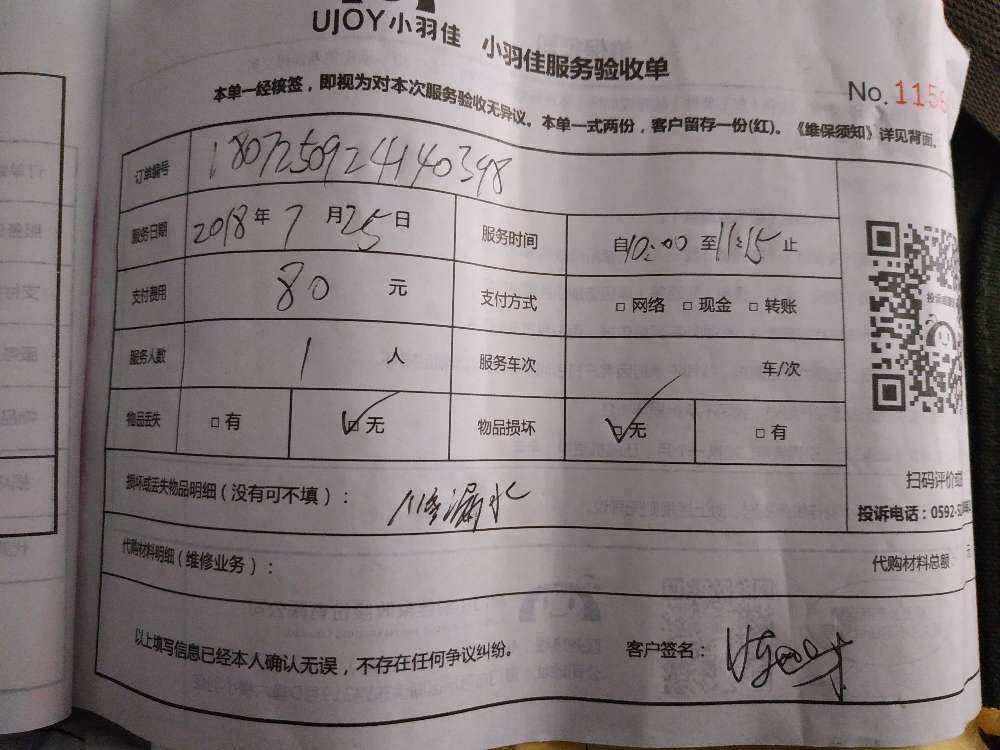 UJOY小羽佳 小羽佳服务验收单
No. 1156
本单一经核签，即视为对本次服务验收无异议。本单一式两份，客户留存一份(红)。《维保须知》详见背面。
订单编号 1807250924140398
服务日期 2018年7月25日 服务时间 自10:00至11:15止
支付费用 80 元 支付方式 □网络 □现金 □转账
服务人数 1 人 服务车次 车/次
物品丢失 □有 ☑无 物品损坏 ☑无 □有
扫码评价或
损坏或丢失物品明细（没有可不填）： 漏水
投诉电话：0592-5
代购材料明细（维修业务）： 代购材料总额 元
以上填写信息已经本人确认无误，不存在任何争议纠纷。 客户签名：